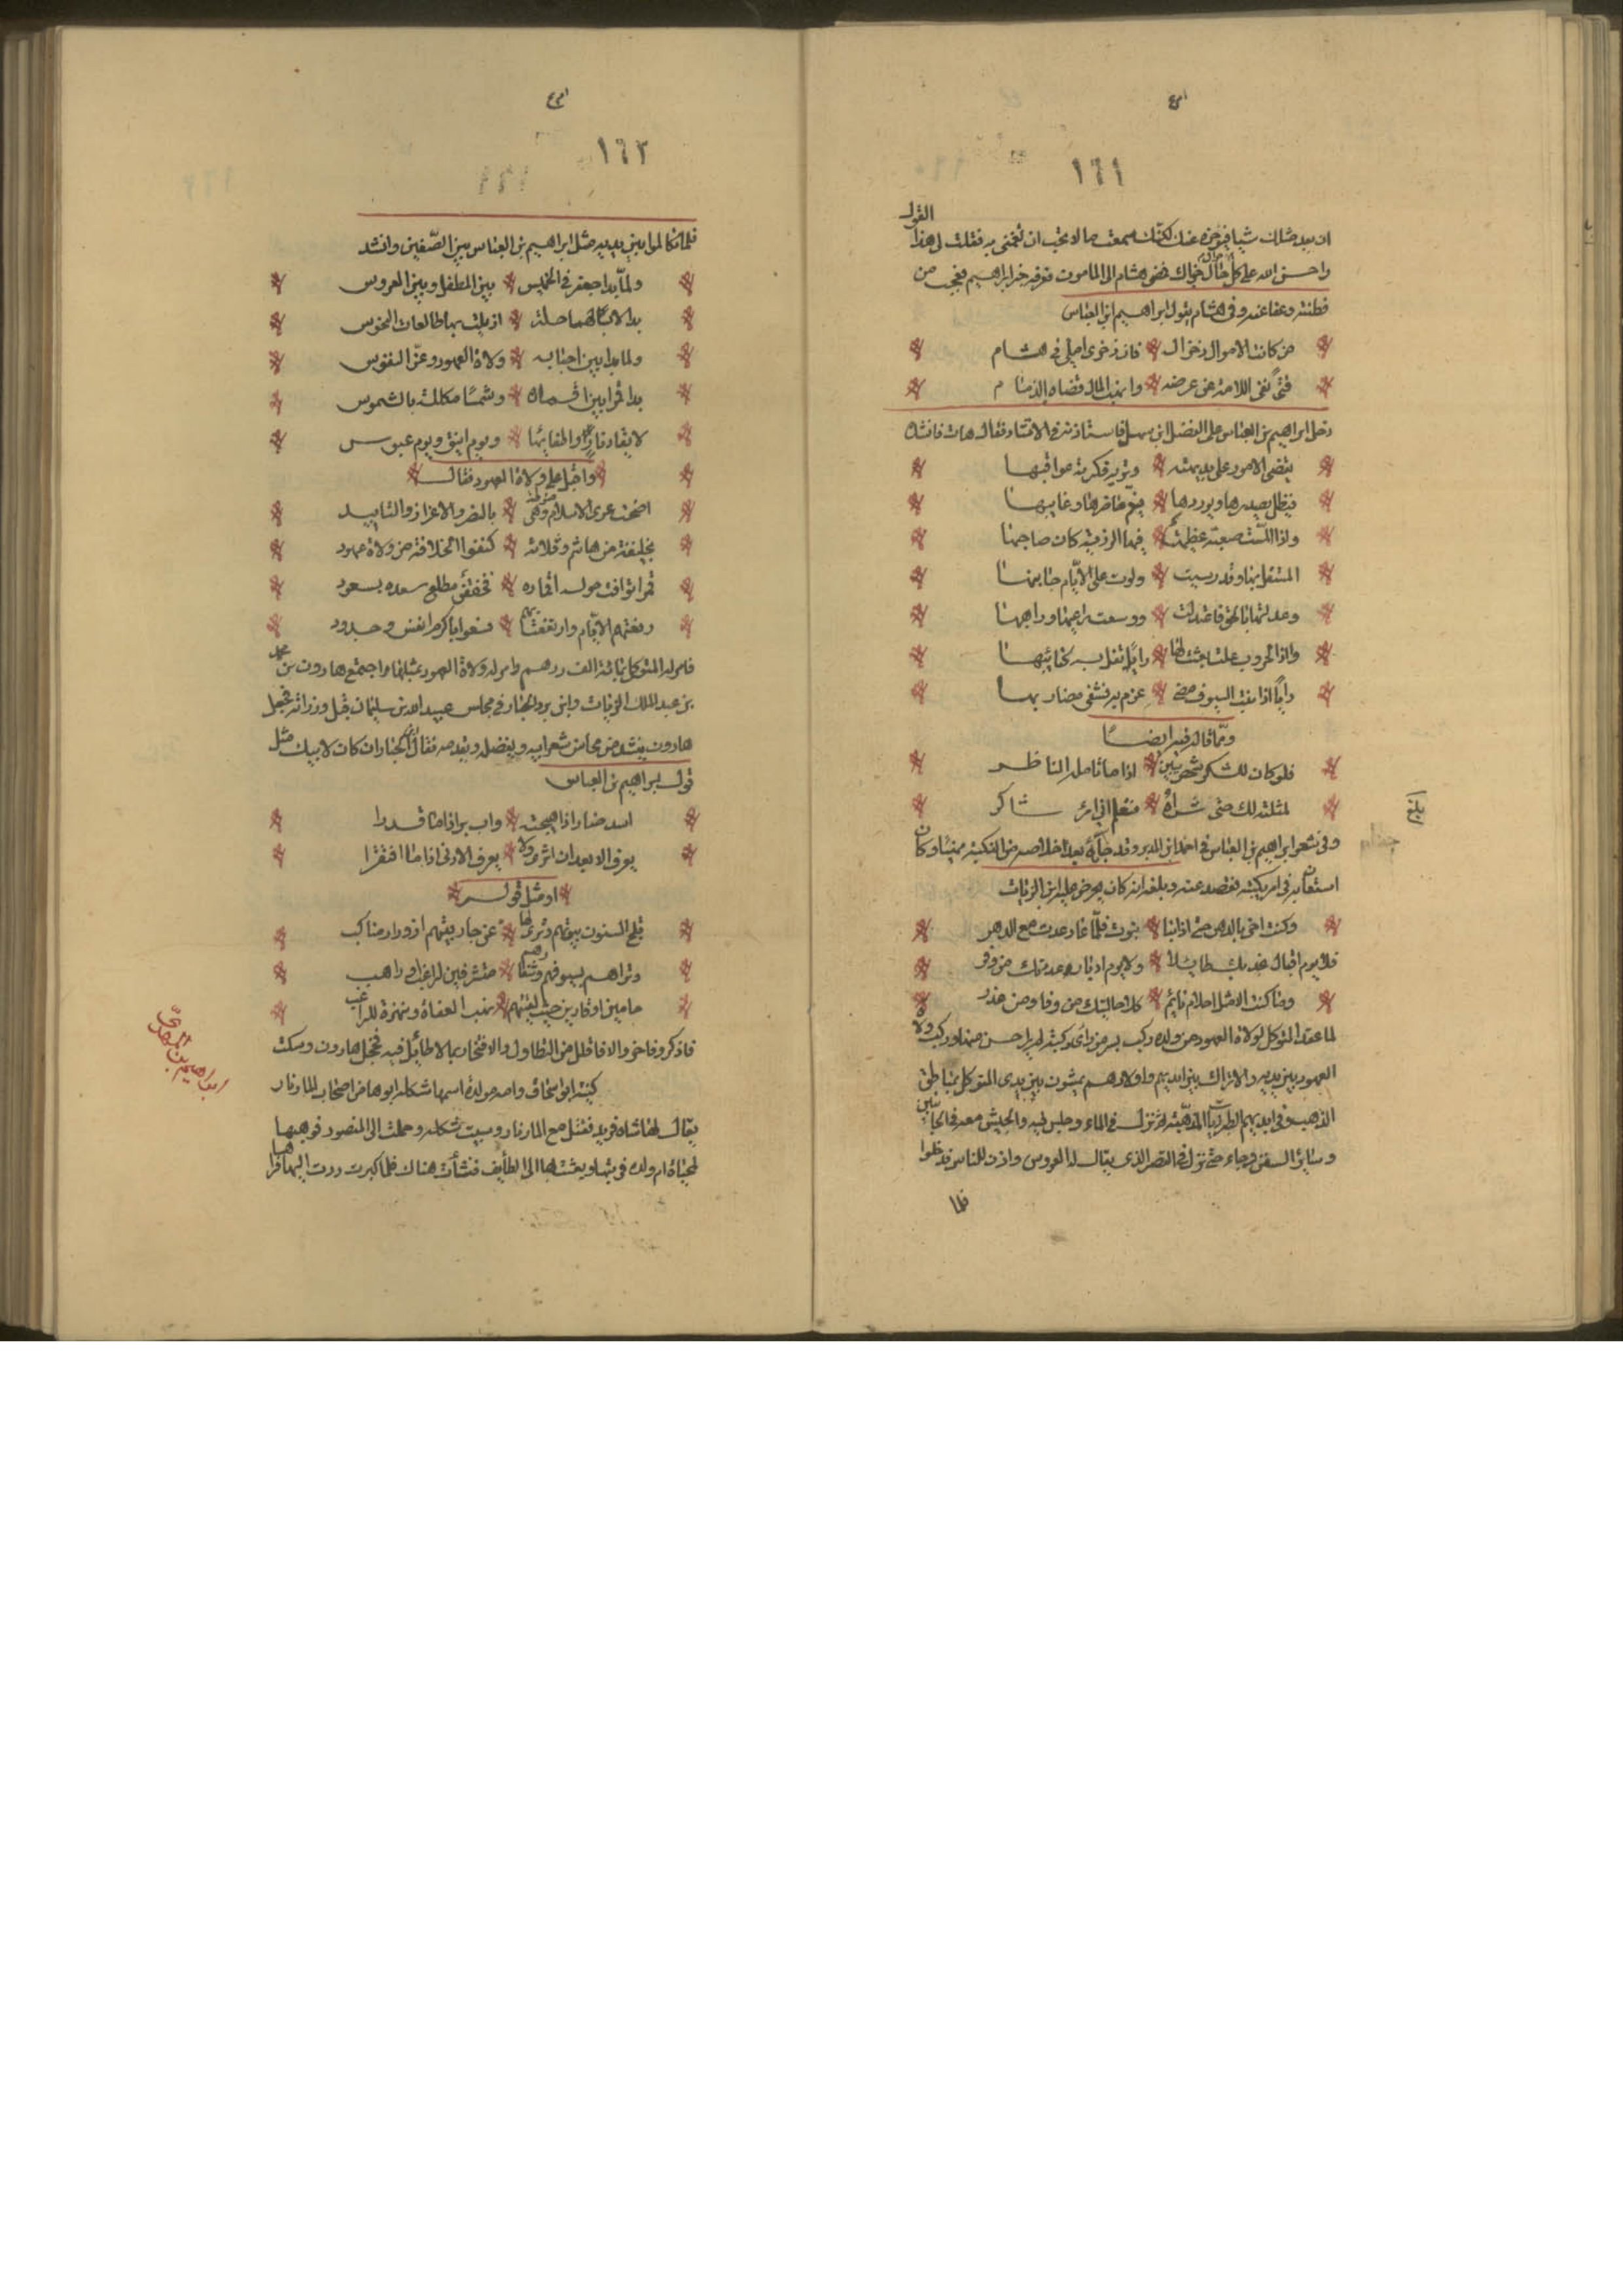 ١٦١
القول
وا حسن الله على كل حال جزاك فمضى هشام الى المامون فعرفه خبر ابراهيم فعجب من
فطنته وعفا عنه وفى هشام يقول ابراهيم ابن العباس
من كانت الاموال ذخرا له فان ذخرى املى فى هشام
فتى نفى اللامة عن عرضه وانهب المال قضاه الذمام
دخل ابراهيم بن العباس على الفضل ابن سهل فاستاذنه فى الانشاد فقال هات فانشد
يقضى الامور على بديهته وتريه فكرته عواقبها
فيظل يصدرها ويوردها فيعم حاضرها وغايبها
واذا المت صعبة عظمت فيها الرزية كان صاحبها
المستقل بها وقد رسبت ولوت على الايام جانبها
وعدلتها بالحق فاعتدلت ووسعت راغبها وراهبها
واذا الحروب غلت بعثت لها رايا تفل به كتائبها
رايا اذا نبت السيوف مضى عزم به فشفى مضاربها
ومما قاله فيه ايضا
فلو كان للشكر شخص يبين اذا ما تامله الناظر
لمثلته لك حتى تراه فتعلم انى امرؤ شاكر
وفى شعر ابراهيم بن العباس فى احمد ابن المدبر وقد جاءه بعد اخلاصه من النكبة مهنيا وكان
استعان به فى امر نكبته فقصد عنه وبلغه انه كان يحرض عليه ابن الزيات
وكنت اخى بالدهر حتى اذا نبا نبوت فلما عاد عدت مع الدهر
فلا يوم اقبال عددتك طايلا ولا يوم ادبار عددتك من وفر
وما كنت الا مثل احلام نايم كلا حالتيك من وفا ومن غدر
لما عقد المتوكل لولاة العهود من ولده ركب بسر من راى ركبة لم ير احسن منها وركب ولاة
العهود بين يديه والاتراك بين ايديهم واولادهم يمشون بين يدى المتوكل بمناطق
الذهب فى ايديهم الطبرزينات المذهبة ثم نزل فى الماء وجلس فيه والجيش معه فى الجانبين
وسائر السفن وجاء حتى نزل فى القصر الذى يقال له العروس واذن للناس فدخلوا
فلما
بلغ
١٦٢
فلما تكاملوا بين يديه مثل ابراهيم بن العباس بين الصفين وانشد
ولما بدا جعفر فى الخميس بين المطل وبين العروس
بدا لابسا بهما حلة ازيلت بها طالعات النحوس
ولما بدا بين احبابه ولاة العهود وعز النفوس
بدا قمرا بين اقماره وشمسا مكللة بالشموس
لايقاد نار واطفائها ويوم انيق ويوم عبوس
واقبل على ولاة العهود فقال
اضحت عرى الاسلام وهى منوطة بالنصر والاعزاز والتاييد
بخليفة من هاشم وثلاثة كنفوا الخلافة من ولاة عهود
قمر توافت حوله اقماره فحففن مطلع سعده بسعود
رفعتهم الايام وارتفعت بهم فسعوا باكرم انفس وجدود
فامر له المتوكل بمائة الف درهم وامر له ولاة العهود بمثلها واجتمع هارون بن محمد
بن عبد الملك الزيات وابن برد الخيار فى مجلس عبيد الله بن سليمان قبل وزارته فجعل
هارون ينشد من محاسن شعر ابيه ويفضله ويقدمه فقال ابن برد الخيار ان كان لابيك مثل
قول ابراهيم بن العباس
اسد ضار اذا هيجته واب بر اذا ما قدرا
يعرف الابعد ان اثرى ولا يعرف الادنى اذا ما افتقرا
او مثل قوله
تلج السنون بيوتهم وترى لها عن جار بيتهم ازورار مناكب
وتراهم بسيوفهم وشفارهم مستشرفين لراغب او راهب
حامين او قارين حيث لقيتهم نهب العفاة ونهزة للراغب
فاذكره وفاخر والا فاقلل من التطاول والافتخار بما لا طائل فيه فخجل هارون وسكت
كنيته ابو اسحاق وامه مولدة اسمها شكله ابوها من اصحاب المازيار
يقال له شاه فريد فقتل مع المازيار وسبيت شكله وحملت الى المنصور فوهبها
لمحياة ام ولده فربتها وبعثت بها الى الطايف فنشأت هناك فلما كبرت ردت اليها فراها
ابراهيم بن المهدى